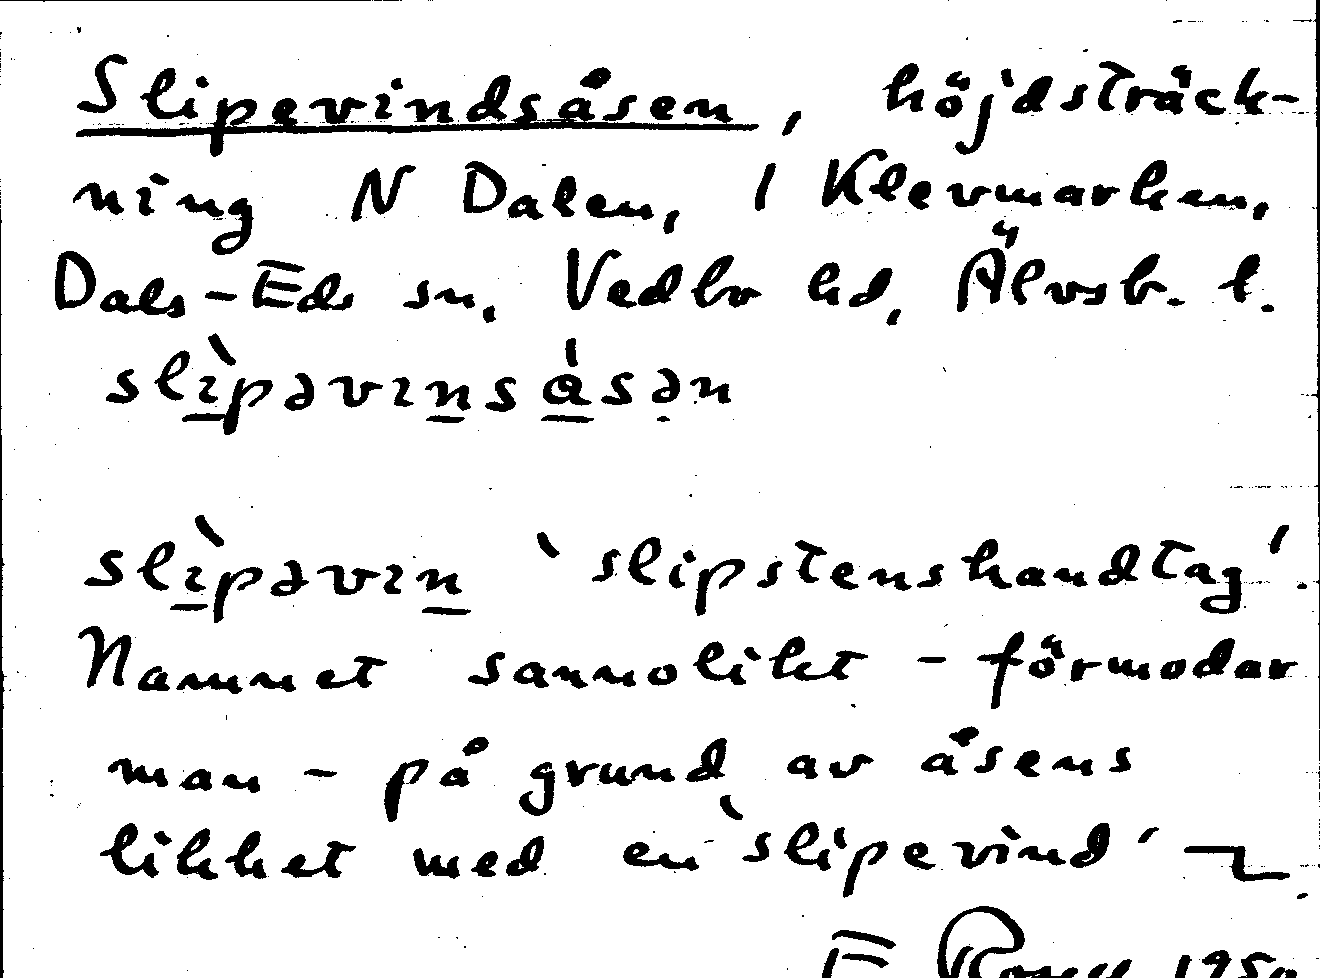 Slipevindsåsen, höjdsträck-
ning N Dalen, i Klevmarken,
Dals-Eds sn, Vedbo hd, Älvsb. l.
slìpəvinsåsən
slìpəvin `slipstenshandtag´.
Namnet sannolikt - förmodar
man - på grund av åsens
likhet med en `slipevind´
E 1950